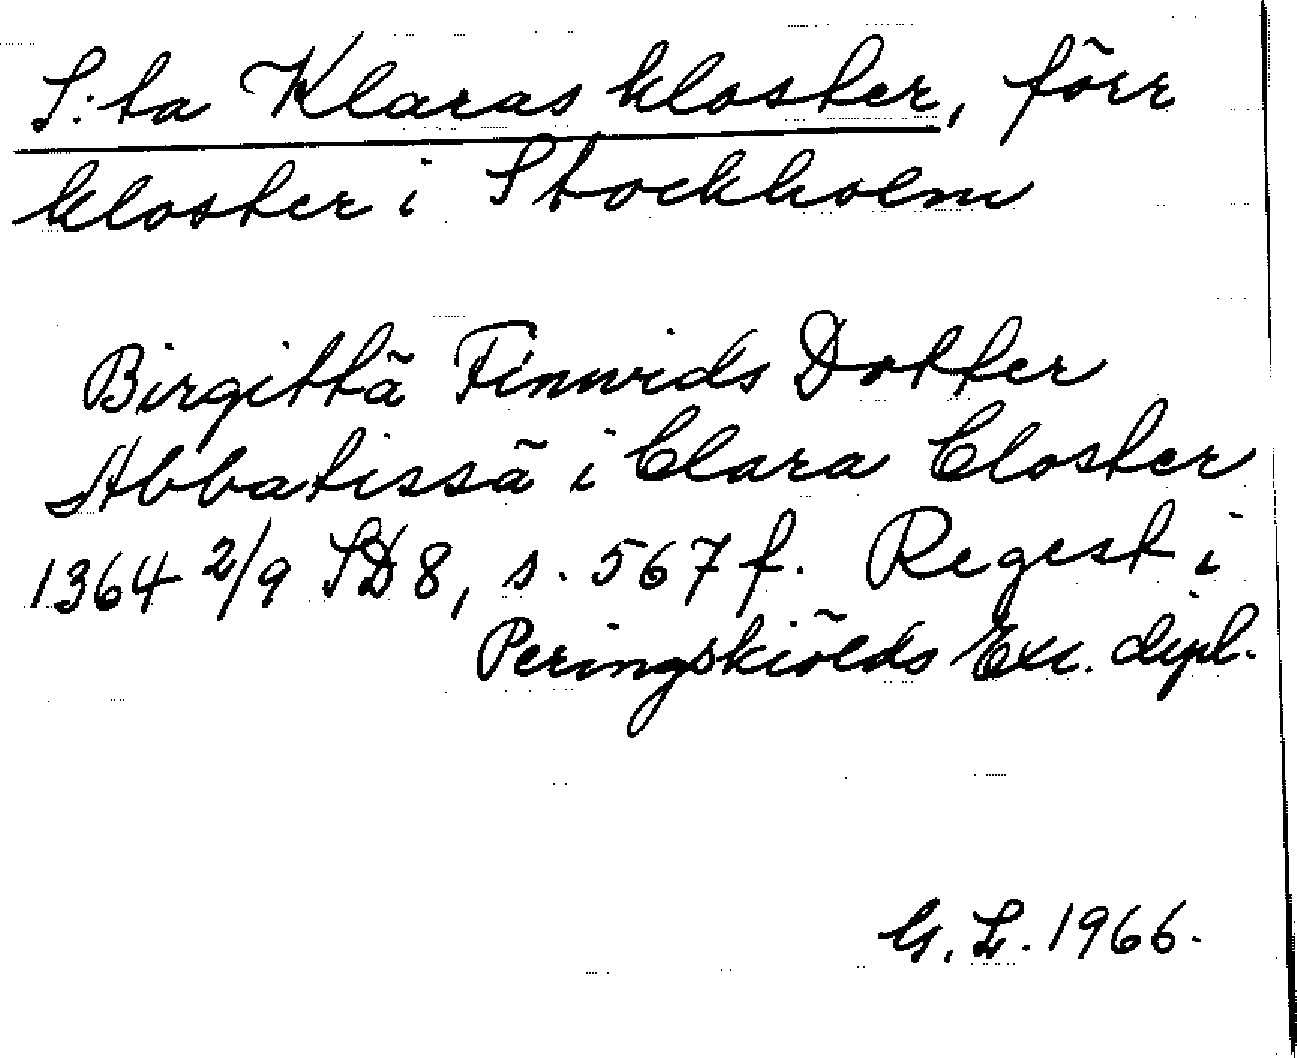 S:ta Klaras kloster, förr
kloster i Stockholm
Birgittä Finnvids Dotter
Abbatissä i Clara Closter
1364 2/9 SD 8, s. 567 f. Regest i
Peringskiölds Exc. dipl.
G. L. 1966.